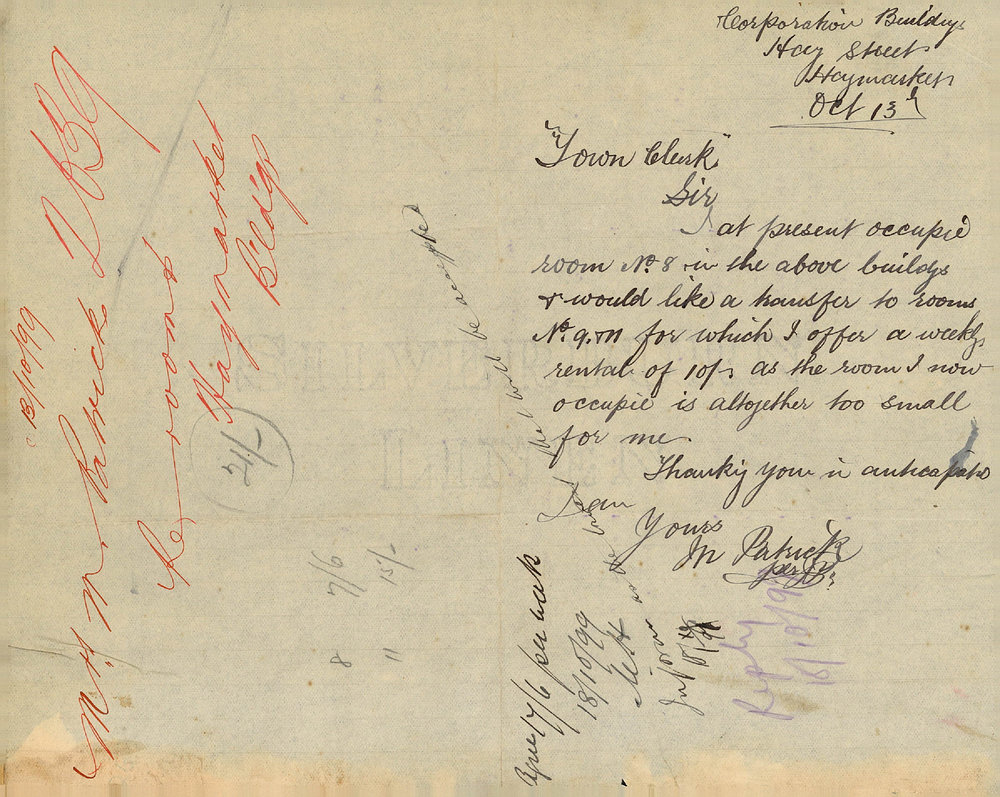 Corporation Buildgs
Hay Street
Haymarket
Oct 13th
"Town Clerk"
Sir
I at present occupie
room No. 8 in the above buildgs
& would like a transfer to rooms
No. 9. 11 for which I offer a weekly
rental of 10/- as the room I now
occupie is altogether too small
for me.
Thanking you in anticipato
I am
Yours
M Patrick
per
Mrs M. Patrick
Re rooms
Haymarket
B'ld'gs
13/10/99
21/-
8 7/6
11 15/-
be accepted
17/6 per week
18/10/99
Inform
Reply
18/10/99